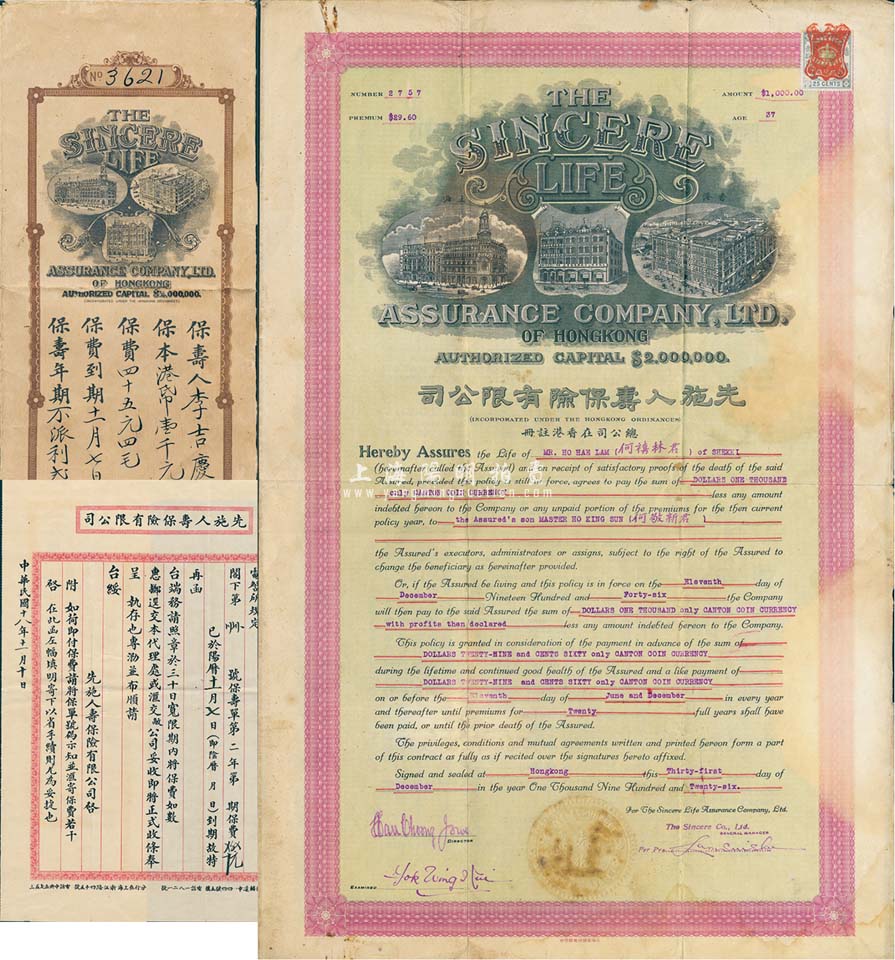 No 3621
THE
SINCERE
LIFE
ASSURANCE COMPANY, LTD.
OF HONGKONG
AUTHORIZED CAPITAL $2,000,000.
(INCORPORATED UNDER THE HONGKONG ORDINANCES)
保壽人李吉慶
保本港幣壹千元
保費四十五元四毛
保費到期十一月七日
保壽年期
司公限有險保壽人施先
閣下第
號保壽單第二年第
期保費
已於陽曆十一月七日(即陰曆 月 日)到期故特
再函
台端務請照章於三十日寬限期內將保費如數
惠擲逕交本代理處或滙交敝公司妥收即將正式收條奉
呈 執存也專泐並布順請
台綏
先施人壽保險有限公司啓
附 如荷即付保費請將保單號碼示知並滙寄保費若干
啓 在此函左幅填明寄下以省手續則尤為妥捷也
中華民國十八年十一月十日
NUMBER 2757
AMOUNT $1,000.00
PREMIUM $29.60
AGE 37
25 CENTS
THE
SINCERE
LIFE
ASSURANCE COMPANY, LTD.
OF HONGKONG
AUTHORIZED CAPITAL $2,000,000.
司公限有險保壽人施先
(INCORPORATED UNDER THE HONGKONG ORDINANCES)
冊註港香在司公總
Hereby Assures the Life of MR. HO HAH LAM (何禧林君) of SHEKKI
(hereinafter called the Assured) and on receipt of satisfactory proofs of the death of the said
Assured, provided the policy is still in force, agrees to pay the sum of DOLLARS ONE THOUSAND
only CANTON COIN CURRENCY less any amount
indebted hereon to the Company or any unpaid portion of the premiums for the then current
policy year, to the Assured's son MASTER HO KING SUN (何敬新君)
the Assured's executors, administrators or assigns, subject to the right of the Assured to
change the beneficiary as hereinafter provided.
Or, if the Assured be living and this policy is in force on the Eleventh day of
December Nineteen Hundred and Forty-six the Company
will then pay to the said Assured the sum of DOLLARS ONE THOUSAND only CANTON COIN CURRENCY
with profits then declared less any amount indebted hereon to the Company.
This policy is granted in consideration of the payment in advance of the sum of
DOLLARS TWENTY-NINE and CENTS SIXTY only CANTON COIN CURRENCY
during the lifetime and continued good health of the Assured and a like payment of
DOLLARS TWENTY-NINE and CENTS SIXTY only CANTON COIN CURRENCY
on or before the Eleventh day of June and December in every year
and thereafter until premiums for Twenty full years shall have
been paid, or until the prior death of the Assured.
The privileges, conditions and mutual agreements written and printed hereon form a part
of this contract as fully as if recited over the signatures hereto affixed.
Signed and sealed at Hongkong this Thirty-first day of
December in the year One Thousand Nine Hundred and Twenty-six.
For The Sincere Life Assurance Company, Ltd.
The Sincere Co., Ltd.
GENERAL MANAGER
DIRECTOR
Per Pro.
EXAMINED